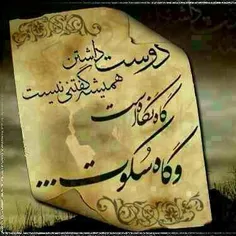 دوست داشتن
همیشه گفتنی نیست
گاه نگاه است
و گاه سکوت ...